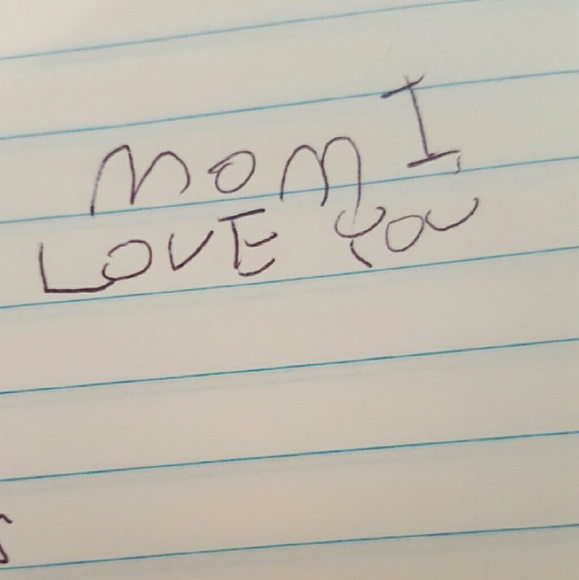 MOM I
LOVE YOU